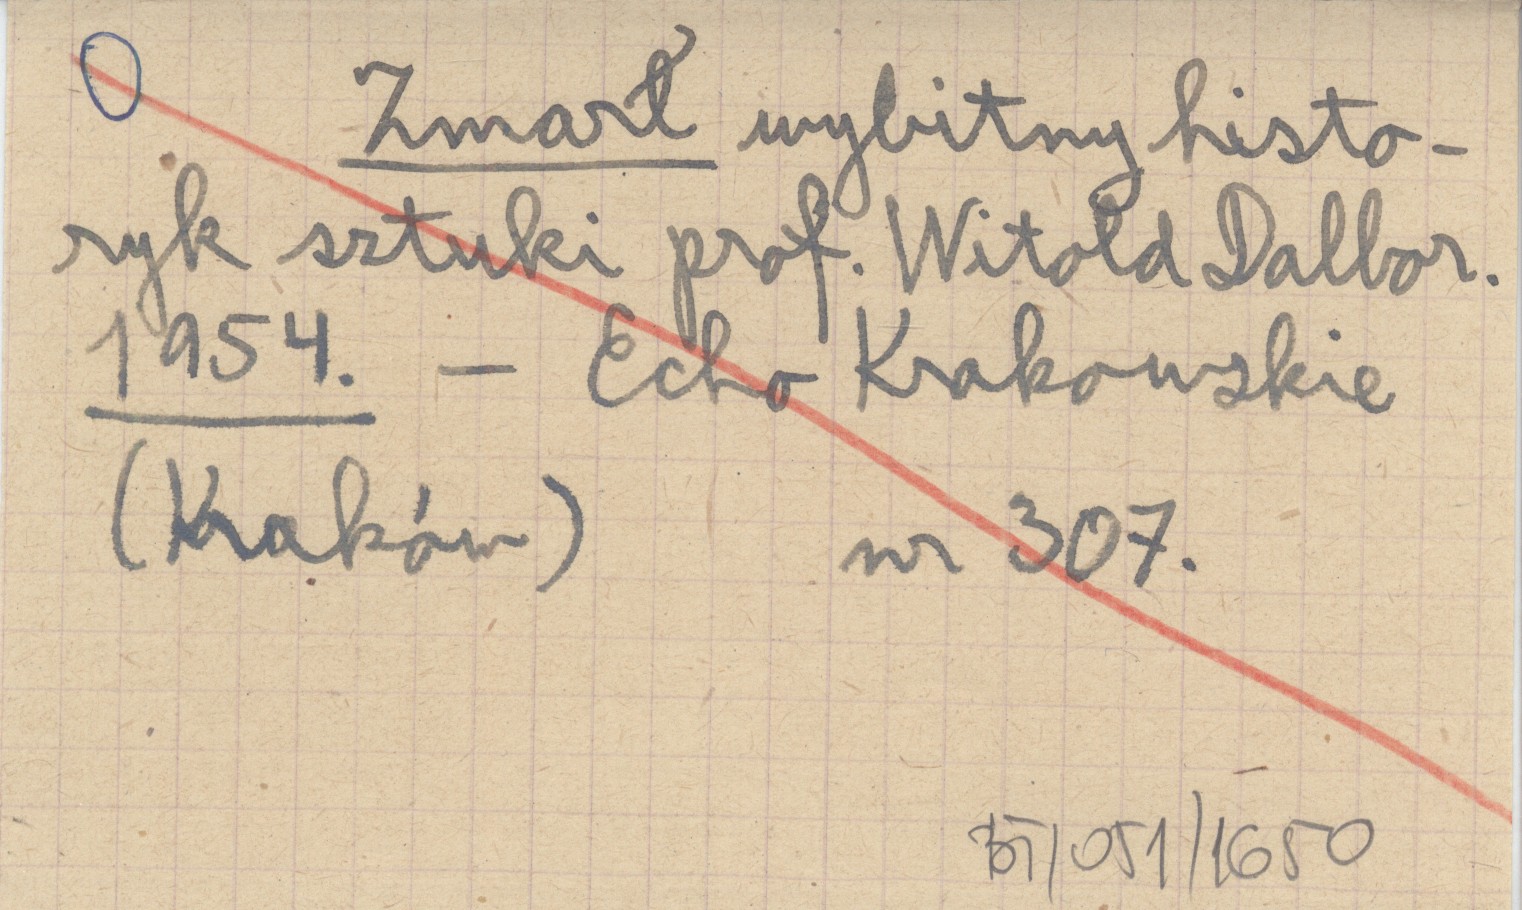 Zmarł wybitny histo-
ryk sztuki prof. Witold Dalbor.
1954. — Echo Krakowskie
(Kraków) nr 307.
/051/1650